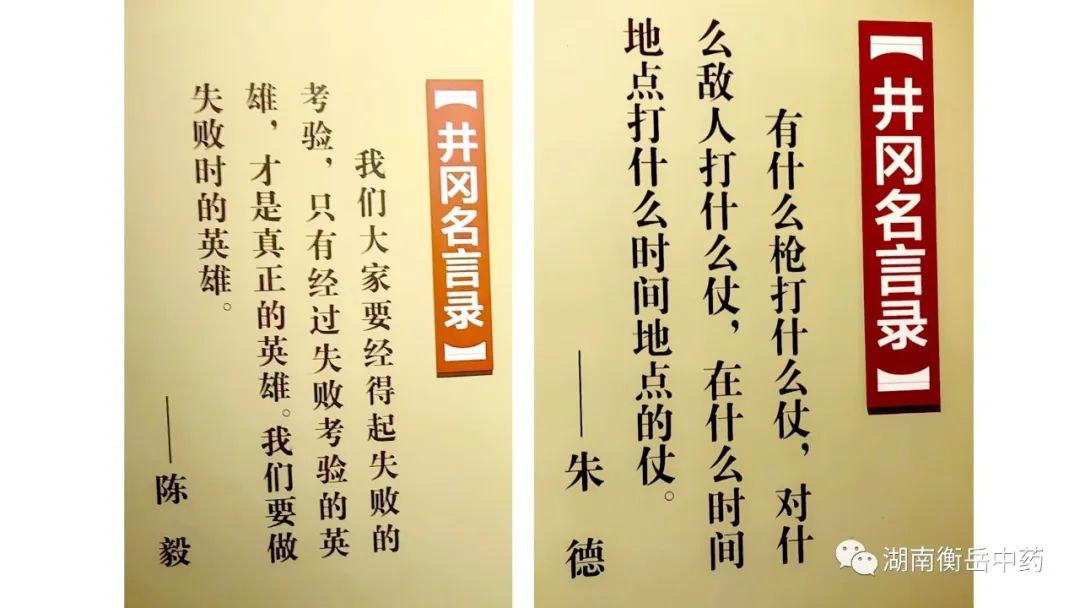 【井冈名言录】
我们大家要经得起失败的
考验，只有经过失败考验的英
雄，才是真正的英雄。我们要做
失败时的英雄。
——陈毅
【井冈名言录】
有什么枪打什么仗，对什
么敌人打什么仗，在什么时间
地点打什么时间地点的仗。
——朱德
湖南衡岳中药